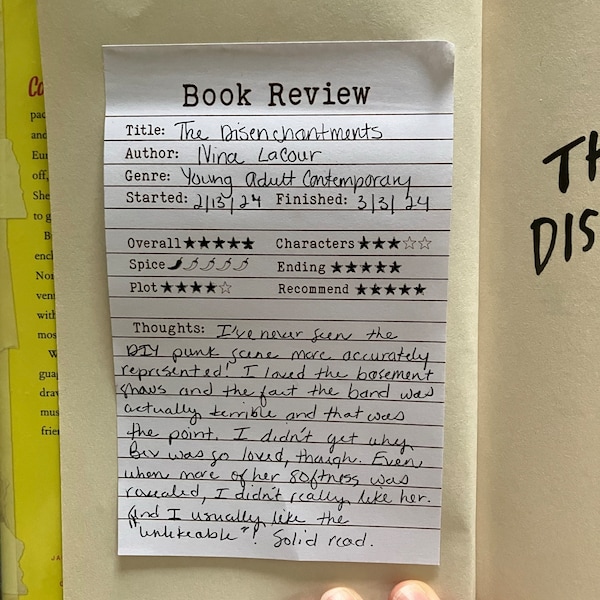 Book Review
Title: The Disenchantments
Author: Nina LaCour
Genre: Young Adult Contemporary
Started: 2/13/24 Finished: 3/3/24
Overall ★★★★★ Characters ★★★☆☆
Spice Ending ★★★★★
Plot ★★★★☆ Recommend ★★★★★
Thoughts: I've never seen the
DIY punk scene more accurately
represented! I loved the basement
shows and the fact the band was
actually terrible and that was
the point. I didn't get why
Bev was so loved, though. Even
when more of her softness was
revealed, I didn't really like her.
And I usually like the
"unlikeable"! Solid read.
TH
DIS